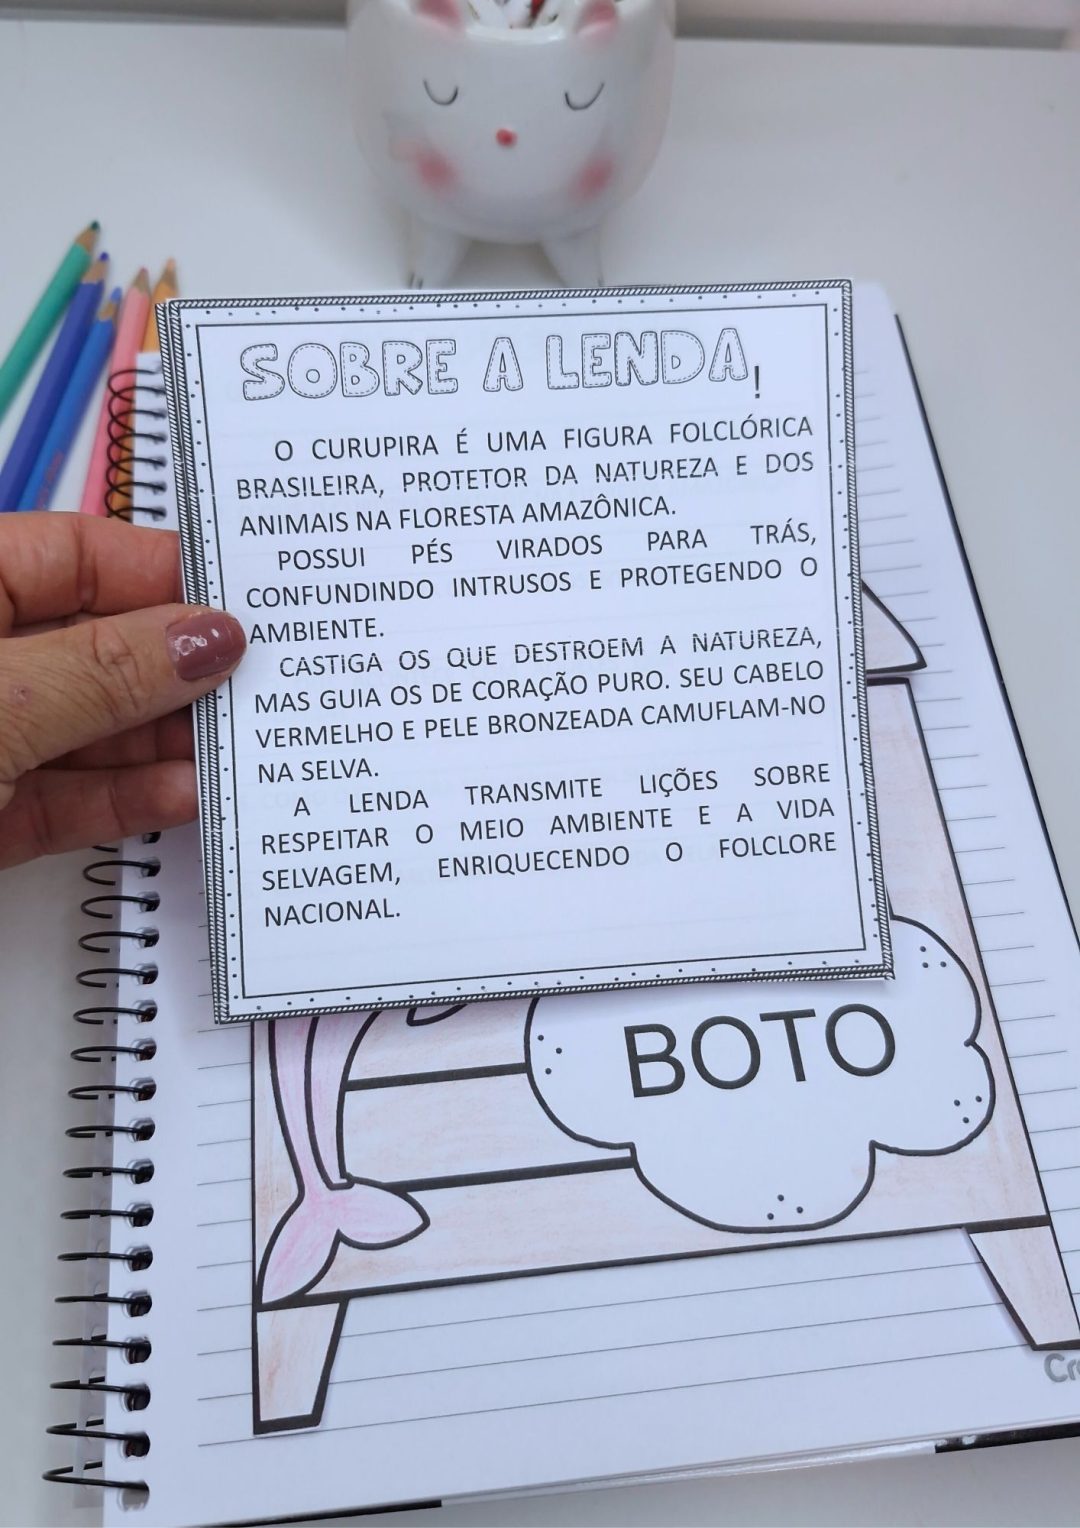 SOBRE A LENDA!
O CURUPIRA É UMA FIGURA FOLCLÓRICA
BRASILEIRA, PROTETOR DA NATUREZA E DOS
ANIMAIS NA FLORESTA AMAZÔNICA.
POSSUI PÉS VIRADOS PARA TRÁS,
CONFUNDINDO INTRUSOS E PROTEGENDO O
AMBIENTE.
CASTIGA OS QUE DESTROEM A NATUREZA,
MAS GUIA OS DE CORAÇÃO PURO. SEU CABELO
VERMELHO E PELE BRONZEADA CAMUFLAM-NO
NA SELVA.
A LENDA TRANSMITE LIÇÕES SOBRE
RESPEITAR O MEIO AMBIENTE E A VIDA
SELVAGEM, ENRIQUECENDO O FOLCLORE
NACIONAL.
BOTO